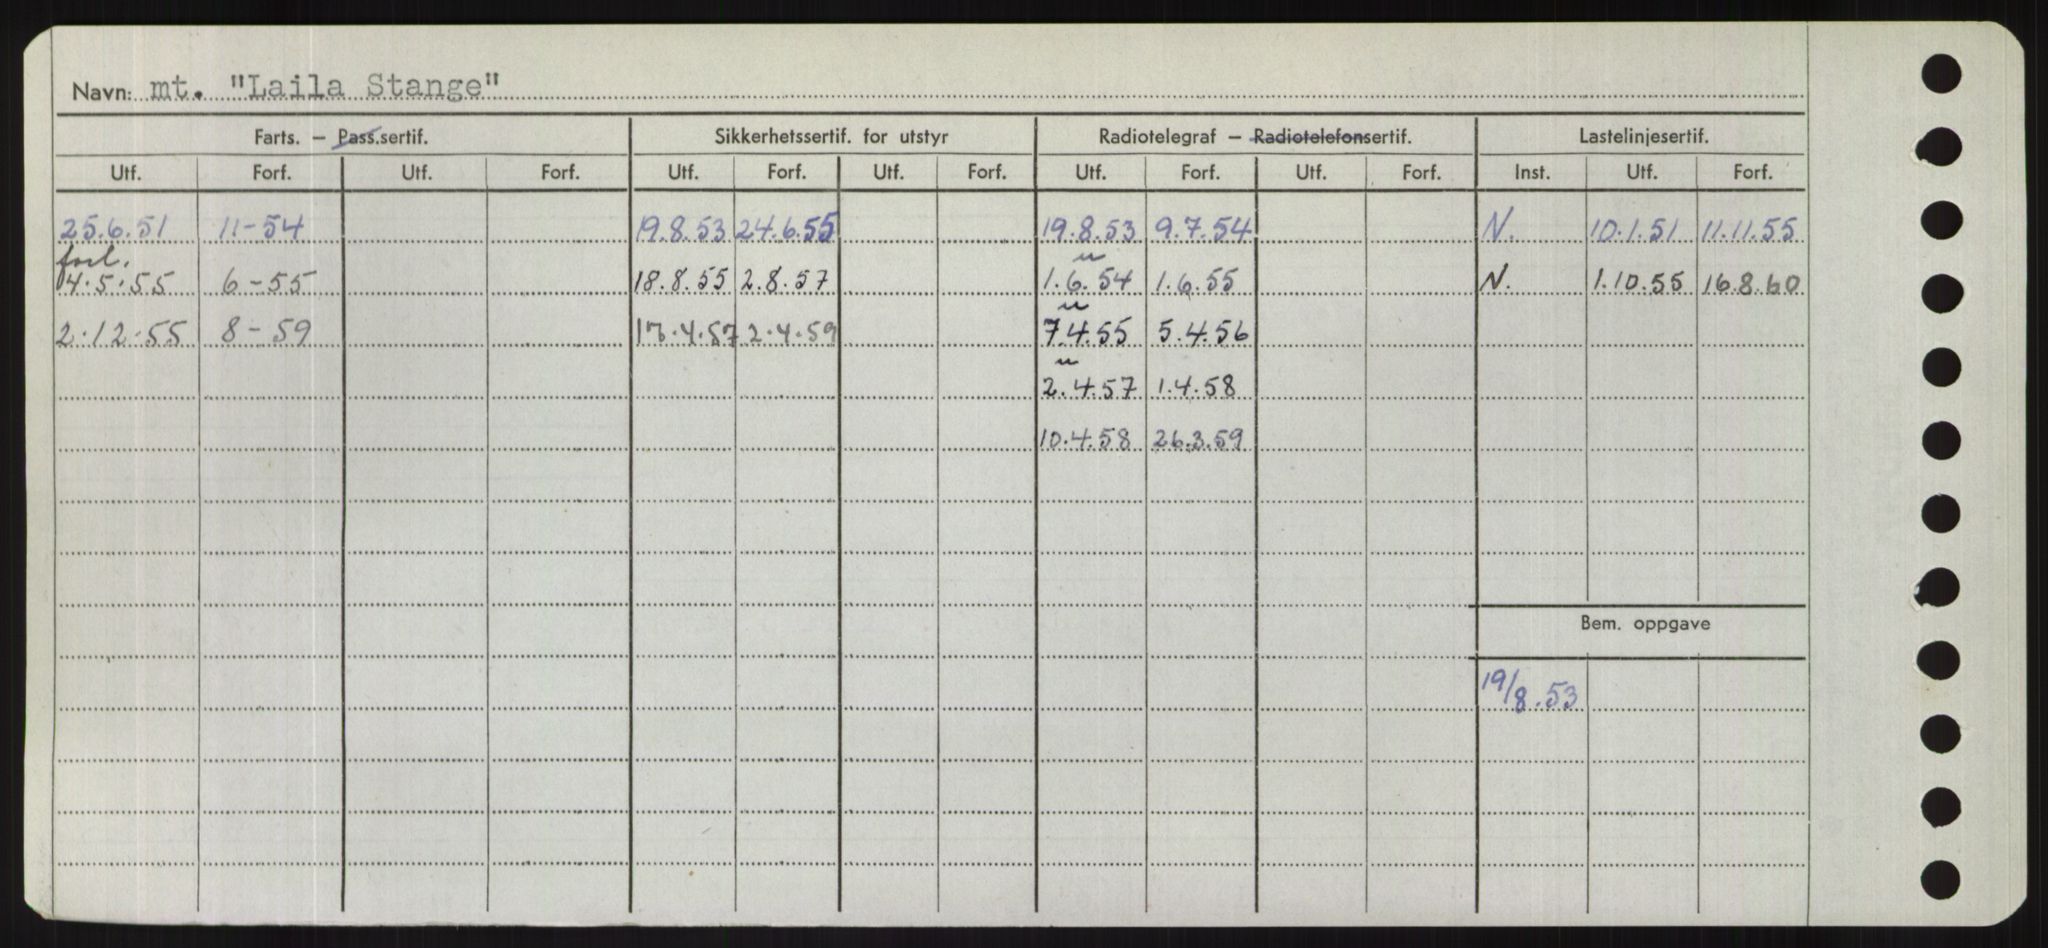 Navn: mt. "Laila Stange"
Farts. — Pass.sertif. Sikkerhetssertif. for utstyr Radiotelegraf — Radiotelefonsertif. Lastelinjesertif.
Utf. Forf. Utf. Forf. Utf. Forf. Utf. Forf. Utf. Forf. Utf. Forf. Inst. Utf. Forf.
25.6.51 11-54 19.8.53 24.6.55 19.8.53 9.7.54 N. 10.1.51 11.11.55
forl. u
4.5.55 6-55 18.8.55 2.8.57 1.6.54 1.6.55 N. 1.10.55 16.8.60
u
2.12.55 8-59 2.4.59 7.4.55 5.4.56
u
2.4.57 1.4.58
10.4.58 26.3.59
Bem. oppgave
19/8.53